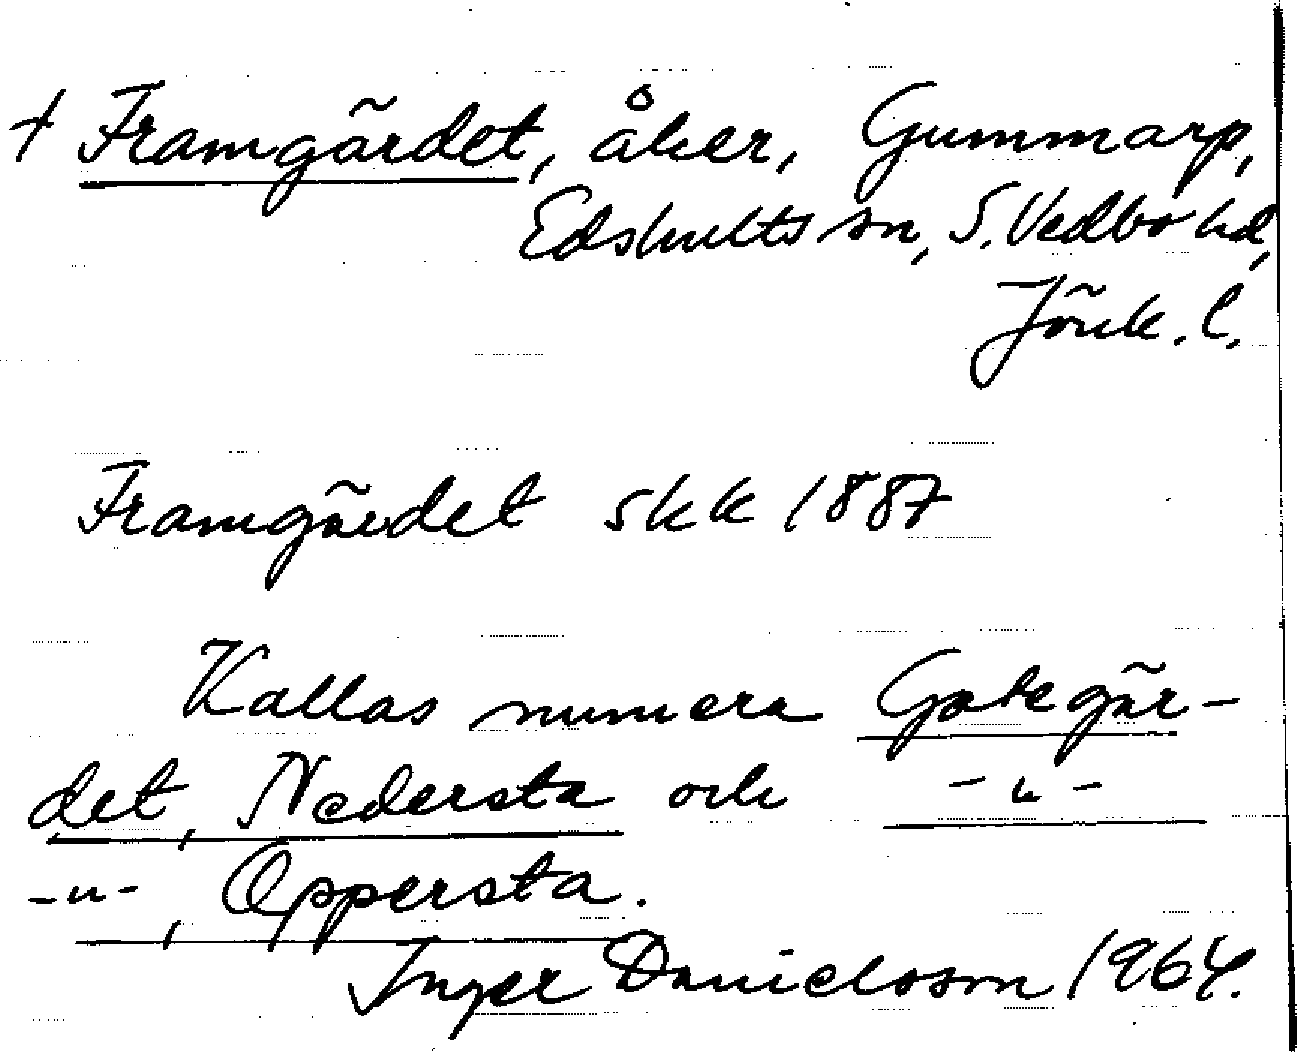 + Framgärdet, åker, Gummarp,
Edshults sn, S. Vedbo hd,
Jönk. l.
Framgärdet skk 1887
Kallas numera Gategär-
det, Nedersta och -"-
-"-, Oppersta.
Inger Danielsson 1964.